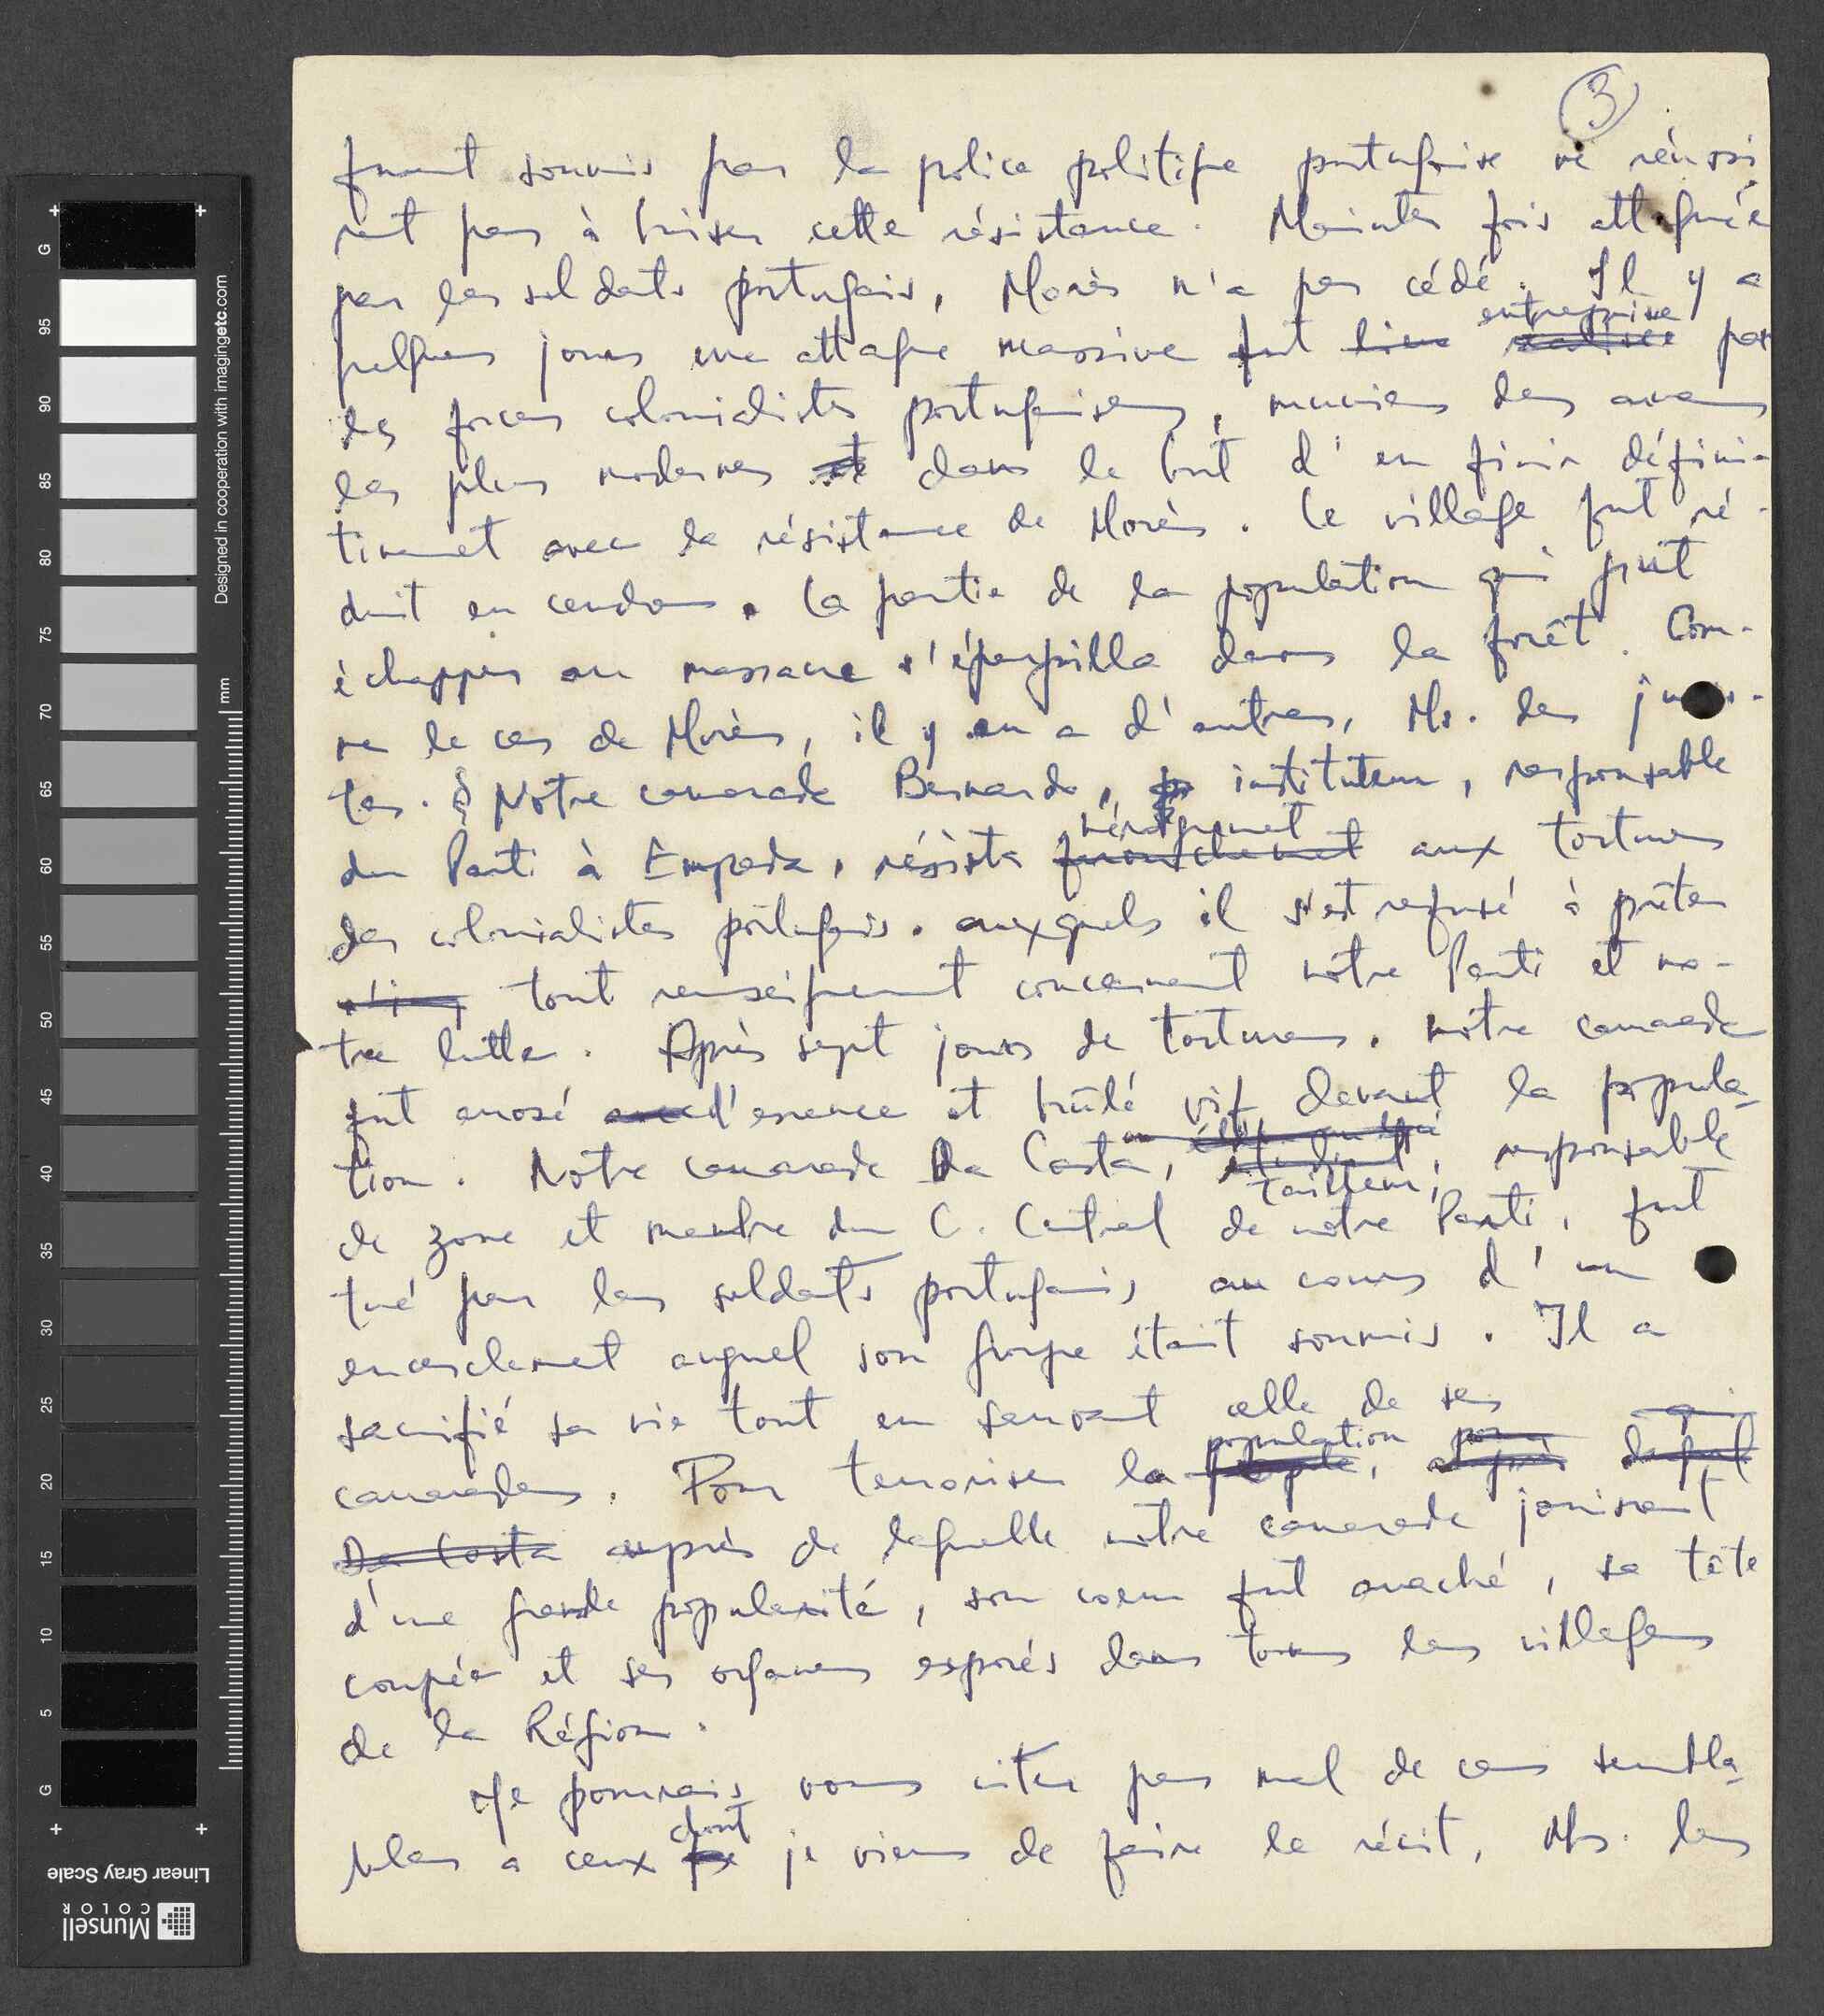 3
furent soumis par la police politique portugaise ne réussi
rent pas à briser cette résistance. Maintes fois attaquée
par les soldats portugais, Morès n'a pas cédé. Il y a
entreprise
quelques jours une attaque massive fut par
les forces colonialistes portugaises, munies des armes
les plus modernes et dans le but d'en finir défini-
tivement avec la résistance de Morès. Le village fut ré-
duit en cendres. La partie de la population qui put
échapper au massacre s'éparpilla dans la forêt. Com-
me le cas de Morès, il y en a d'autres, Ms. les juris-
tes. § Notre camarade Bernardo, instituteur, responsable
héroïquement
du Parti à Empada, résista farouchement aux tortures
des colonialistes portugais. auxquels il s'est refusé à prêter
tout renseignement concernant notre Parti et no-
tre lutte. Après sept jours de tortures, notre camarade
fut arrosé avec d'essence et brûlé vif devant la popula-
tion. Notre camarade Da Costa, étudiant, responsable
tailleur,
de zone et membre du C. Central de notre Parti, fut
tué par les soldats portugais au cours d'un
encerclement auquel son groupe était soumis. Il a
sacrifié sa vie tout en sauvant celle de ses
population pour
camarades. Pour terroriser la peuple, auprès duquel
Da Costa auprès de laquelle notre camarade jouissait
d'une grande popularité, son coeur fut arraché, sa tête
coupée et ses organes exposés dans tous les villages
de la Région.
Je pourrais vous citer pas mal de cas sembla-
dont
bles a ceux que je viens de faire le récit, Ms. les
Designed in cooperation with imagingetc.com
mm
G
95
90
85
80
75
70
65
60
55
50
45
40
35
30
25
20
15
10
5
G
Linear Gray Scale
Munsell
COLOR